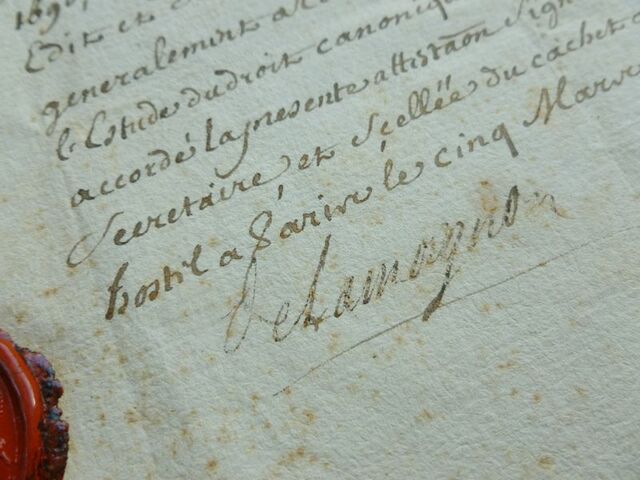 Edit et
generalement a
l'Estude du droit canoniq
accordé la presente attistãon Sign
Secretaire, et Scellée du cachet
hostil a Parivs le cinq Mars
Delamagnon